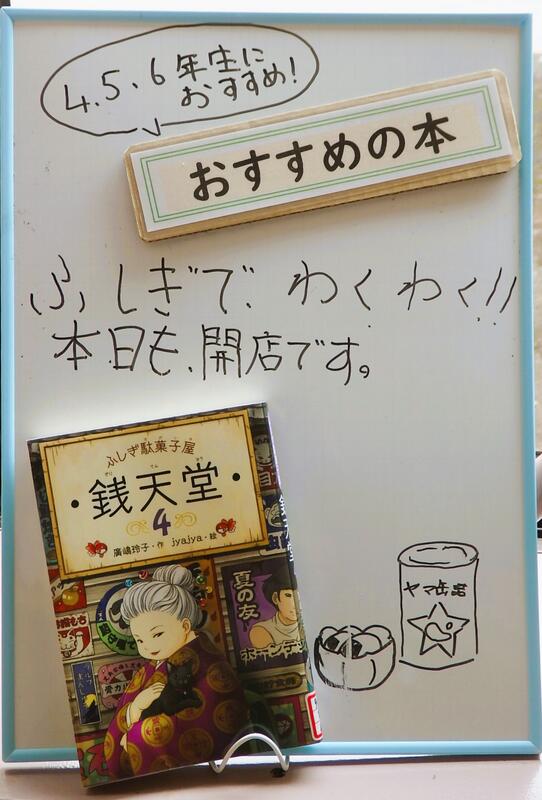 4、5、6年生に
おすすめ!
おすすめの本
ふしぎで、わくわく!!
本日も、開店です。
ふしぎ駄菓子屋
ぜに てん どう
・銭天堂・
4
廣嶋玲子・作 jyajya・絵
銭天堂
夏の友
ヤマ缶詰